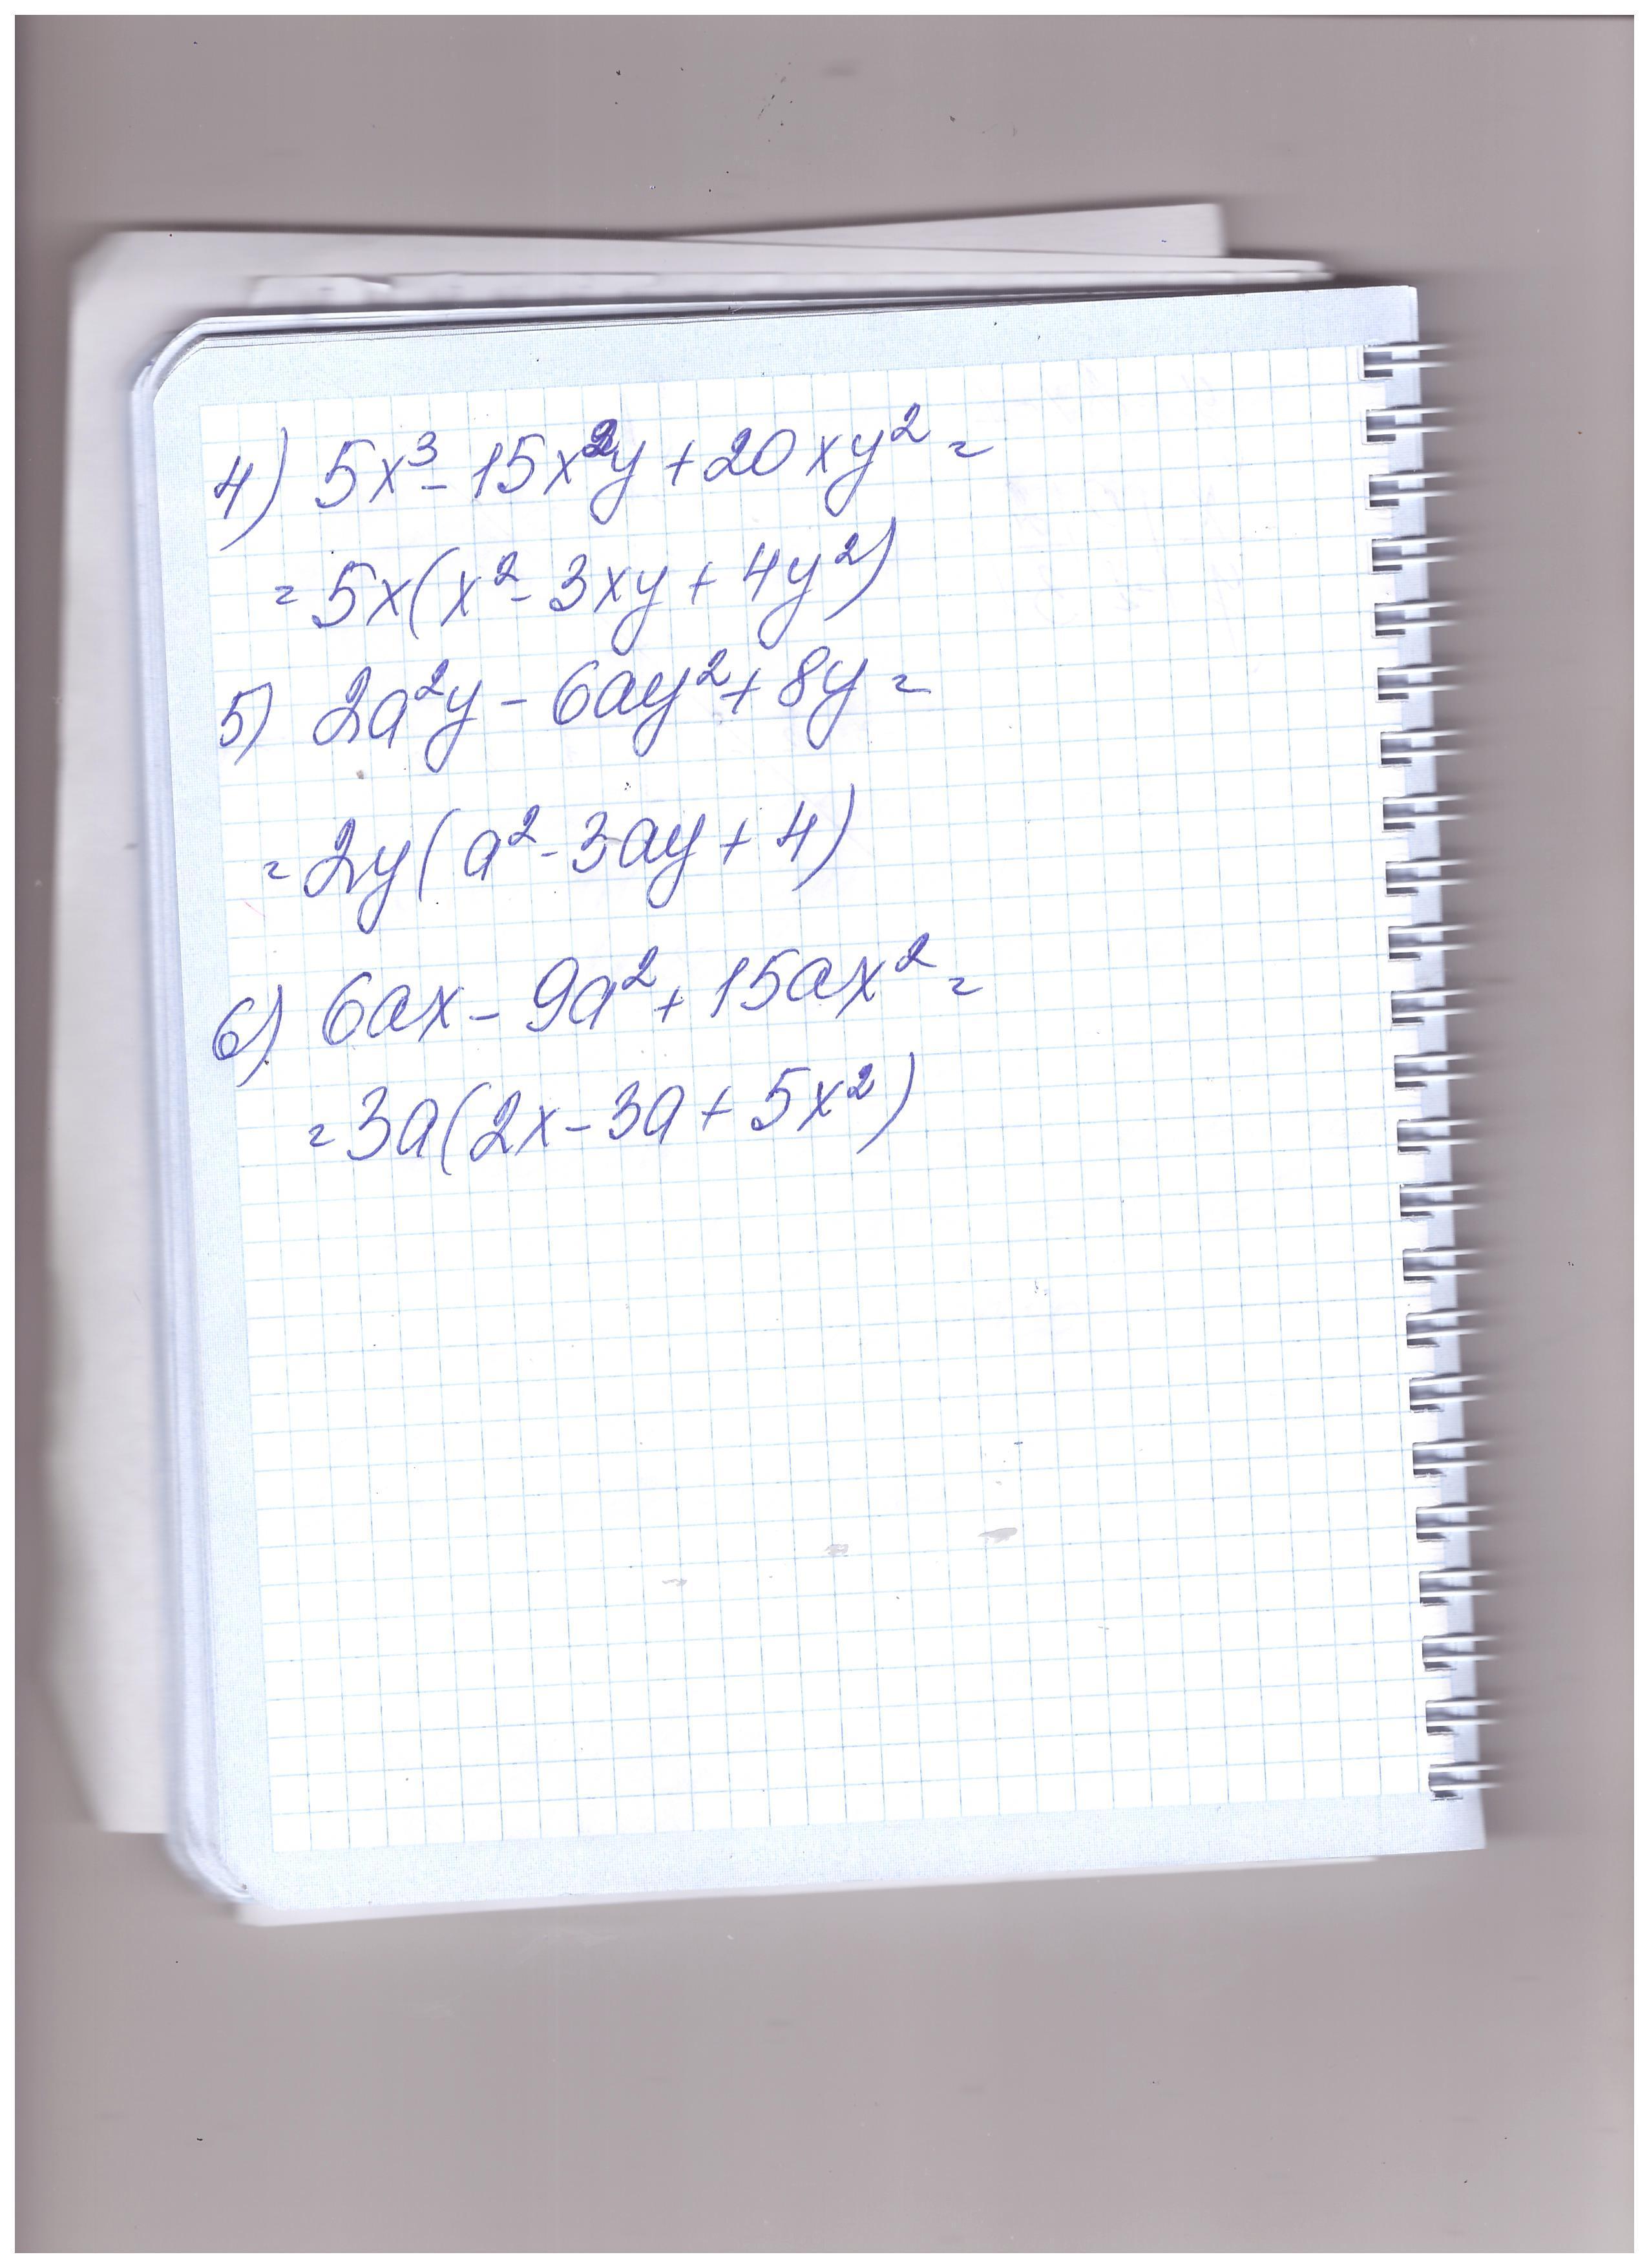 4) 5x³ - 15x²y + 20xy² =
= 5x(x² - 3xy + 4y²)
5) 2a²y - 6ay² + 8y =
= 2y(a² - 3ay + 4)
6) 6ax - 9a² + 15ax² =
= 3a(2x - 3a + 5x²)